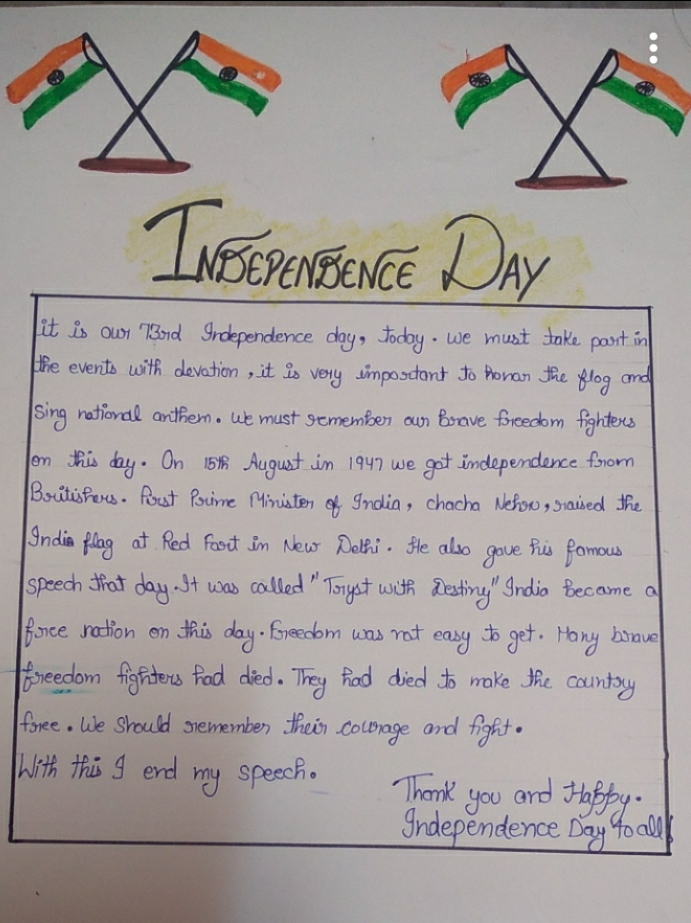 INDEPENDENCE DAY
it is our 73rd Independence day, today. we must take part in
the events with devation, it is very important to honar the flog and
Sing national anthem. we must remember our brave freedom fighters
on this day. On 15th August in 1947 we got independence from
Britishers. first Prime Minister of India, chacha Nehru, raised the
India flag at Red Fort in New Delhi. He also gave his famous
speech that day. It was called "Tryst with Destiny" India became a
free nation on this day. Freedom was not easy to get. Many brave
freedom fighters had died. They had died to make the country
free. We should remember their courage and fight.
With this I end my speech.
Thank you and Happy.
Independence Day to all